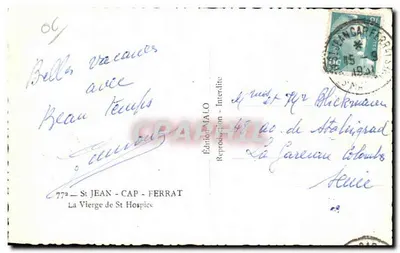 06
Belles vacances
avec
Beau temps
77a — St JEAN - CAP - FERRAT
La Vierge de St Hospice
Edition MALO
Reproduction - Interdite
Mme et Mr Blickmann
av. de Stalingrad
La Garenne Colombes
Seine
Cartorum